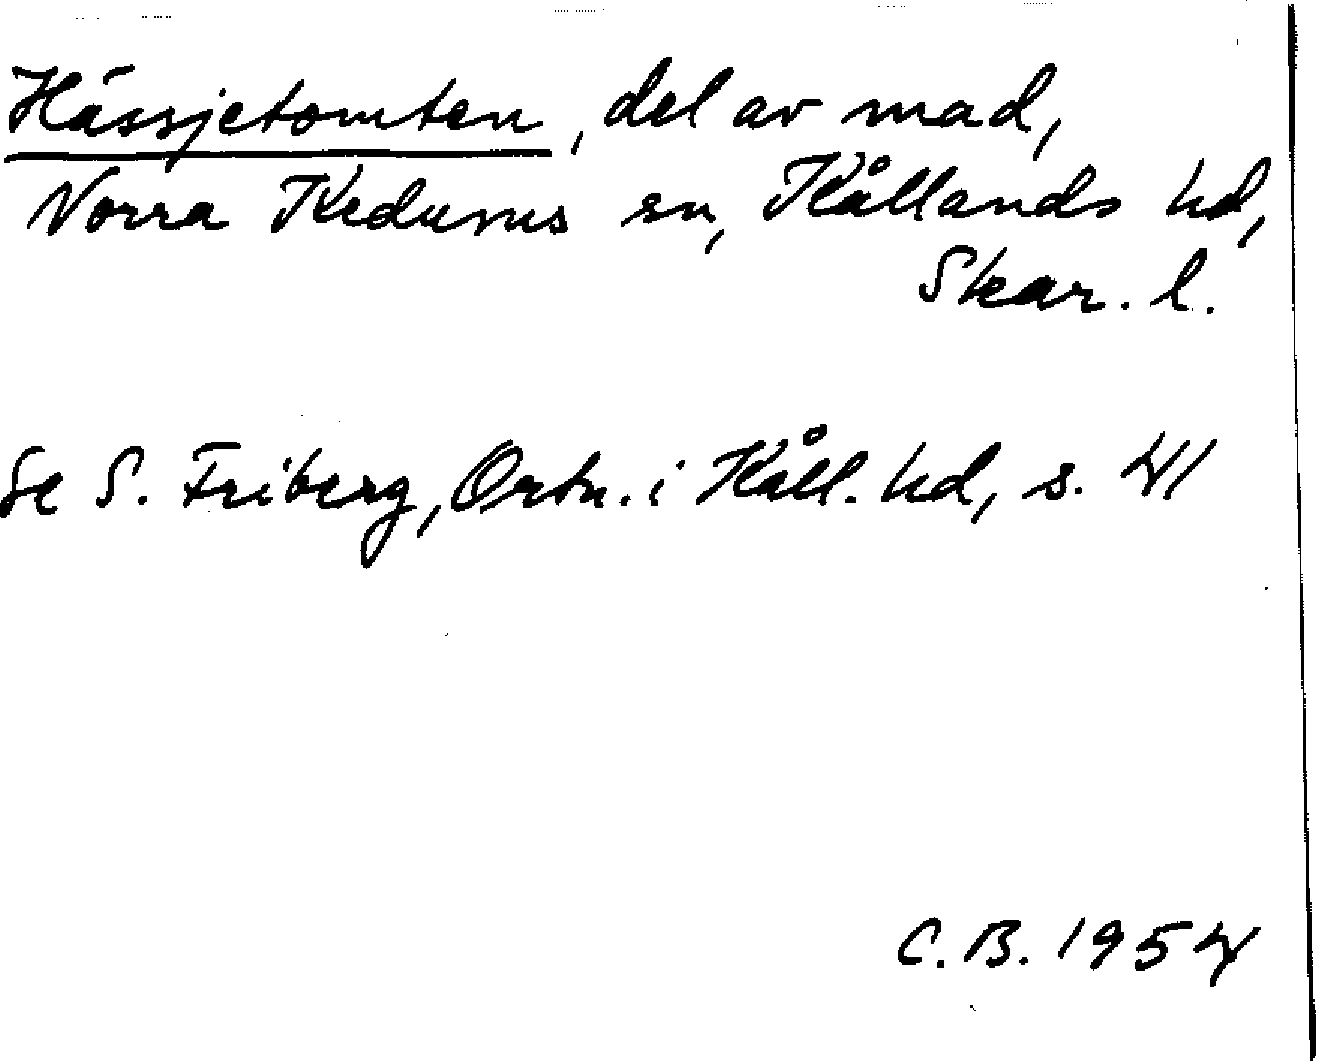 Hässjetomten, del av mad,
Norra Kedums sn, Kållands hd,
Skar. l.
Se S. Friberg, Ortn. i Kåll. hd, s. 41
C. B. 1954